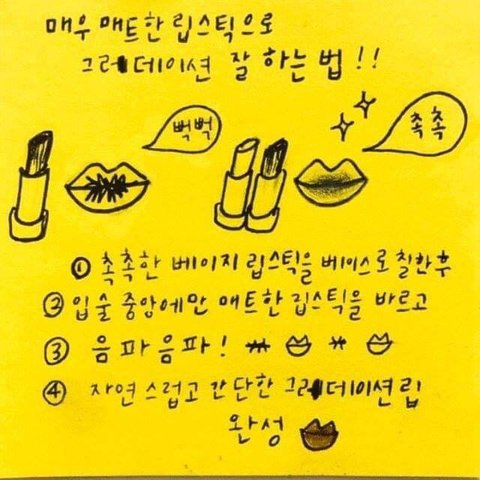 매우 매트한 립스틱으로
그러데이션 잘 하는 법!!
뻑뻑
촉촉
① 촉촉한 베이지 립스틱을 베이스로 칠한 후
② 입술 중앙에만 매트한 립스틱을 바르고
③ 음파음파!
④ 자연스럽고 간단한 그러데이션 립
완성